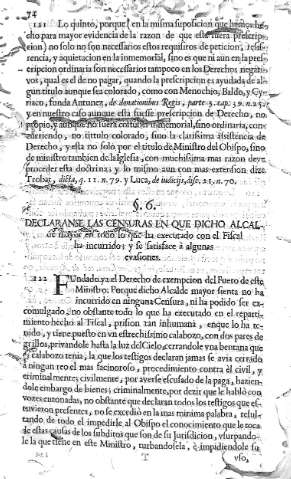 74
121 Lo quinto, porque en la misma suposicion que hemos he-
cho para mayor evidencia de la razon de que esta fuera prescrip-
cion) no solo no son necessarios estos requisitos de peticion, resis-
rencia, y aquietacion en la inmemorial, sino es que ni aun en la pres-
cripcion ordinaria son necessarios tampoco en los Derechos negati-
vos, qual es el de no pagar, quando la prescripcion es ayudada de al-
gun titulo aunque sea colorado, como con Menochio, Baldo, y Cy-
riaco, funda Antunez, de donationibus Regis, parte 3. cap. 39. n. 25.
y en nuestro caso aunque esta fuesse prescripcion de Derecho, no
propio, y aunque no fuera inmemorial, sino ordinaria, con-
curriendo, no titulo colorado, sino la clarissima assistencia de
Derecho, y esta no solo por el titulo de Ministro del Obispo, sino
de ministro tambien de la Iglesia, con muchissima mas razon deven
proceder esta doctrina; y lo mismo aun con mas extension dize
Trobat, dicta, q. 11. n. 79. y Luca, de iudicijs, disc. 25. n. 70.
§. 6.
DECLARANSE LAS CENSURAS EN QUE DICHO ALCAL-
de mayor en todo lo que ha executado con el Fiscal
ha incurrido; y se satisface à algunas
evasiones.
122 FUndado ya el Derecho de exempcion del Fuero de este
Ministro. Porque dicho Alcalde mayor siente no ha
incurrido en ninguna Censura, ni ha podido ser ex-
comulgado, no obstante todo lo que ha executado en el reparti-
miento hecho al Fiscal, prision tan inhumana, en que lo ha te-
nido, y tiene puesto en vn estrechissimo calabozo, con dos pares de
grillos, privandole hasta la luz del Cielo, cerrandole vna bentana que
el calabozo tenia, la que los testigos declaran jamas se avia cerrado
à ningun reo el mas facinoroso, procedimiento contra èl civil, y
criminalmente; civilmente, por averse escusado de la paga, hazien-
dole embargo de bienes; criminalmente, por dezir que le habló con
vozes entonadas, no obstante que declaran todos los testigos que es-
tuvieron presentes, no se excedió en la mas minima palabra, resul-
tando de todo el impedirle al Obispo el conocimiento que le toca
de estas causas de los subditos que son de su Jurisdicion, vsurpando-
le la que tiene en este Ministro, turbandosela, è impidiendole su
T vso,